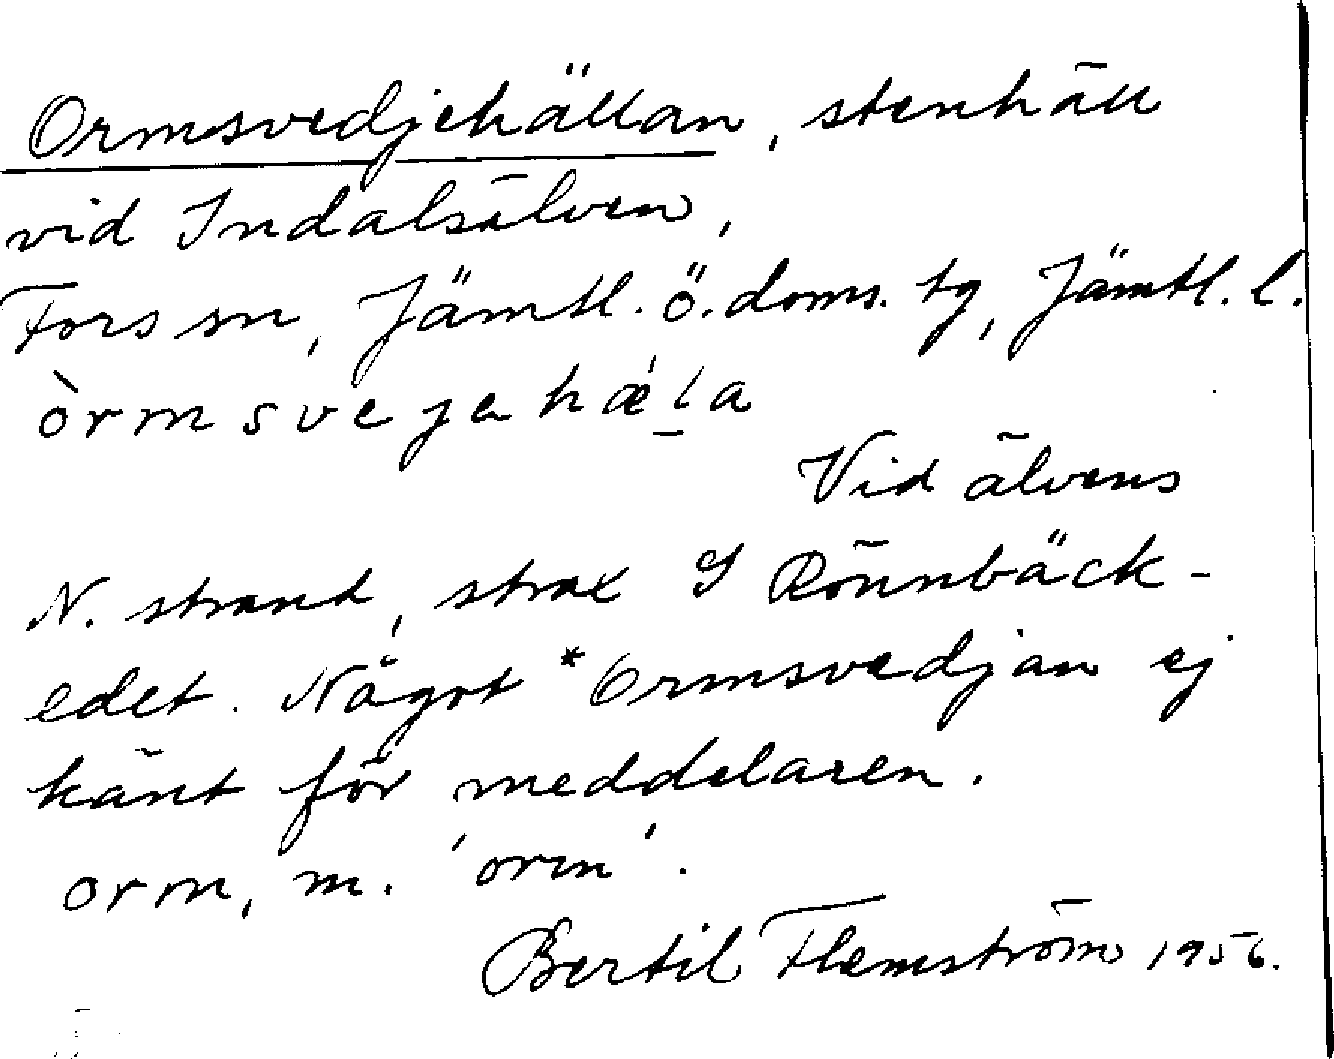 Ormsvedjehällan, stenhäll
vid Indalsälven,
Fors sn, Jämtl. ö. doms. tg, Jämtl. l.
òrmsvejahǽl̠a
Vid älvens
N. strand, strax S Rönnbäck-
edet. Något *Ormsvedjan ej
känt för meddelaren.
orm, m. 'orm'.
Bertil Flemström 1956.